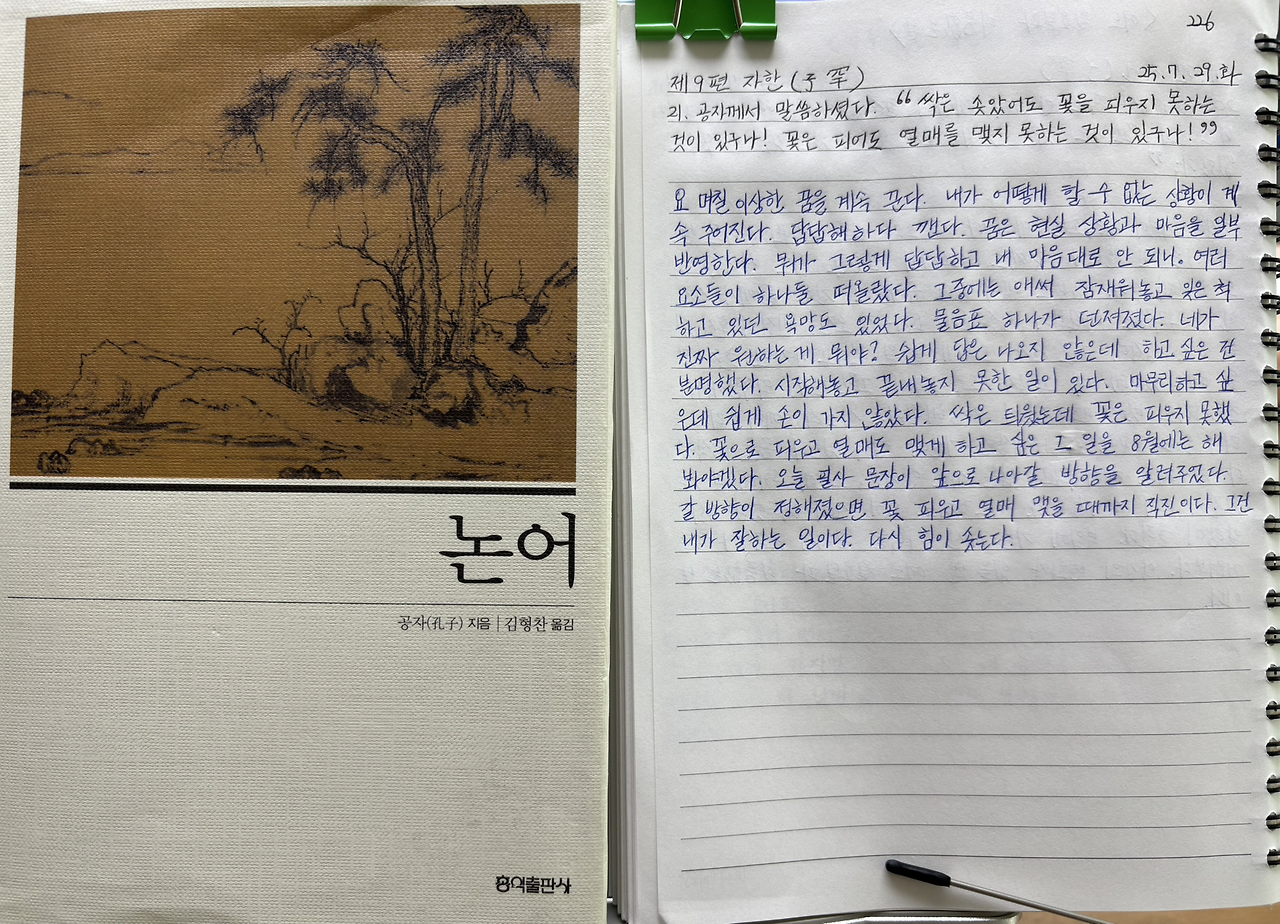 논어
공자(孔子) 지음 | 김형찬 옮김
홍익출판사
226
제9편 자한(子罕) 25.7.29.화
21. 공자께서 말씀하셨다. "싹은 솟았어도 꽃을 피우지 못하는
것이 있구나! 꽃은 피어도 열매를 맺지 못하는 것이 있구나!"
요 며칠 이상한 꿈을 계속 꾼다. 내가 어떻게 할 수 없는 상황이 계
속 주어진다. 답답해하다 깬다. 꿈은 현실 상황과 마음을 일부
반영한다. 뭐가 그렇게 답답하고 내 마음대로 안 되니. 여러
요소들이 하나둘 떠올랐다. 그중에는 애써 잠재워놓고 잊은 척
하고 있던 욕망도 있었다. 물음표 하나가 던져졌다. 네가
진짜 원하는 게 뭐야? 쉽게 답은 나오지 않은데 하고 싶은 건
분명했다. 시작해놓고 끝내놓지 못한 일이 있다. 마무리하고 싶
은데 쉽게 손이 가지 않았다. 싹은 틔웠는데 꽃은 피우지 못했
다. 꽃으로 피우고 열매도 맺게 하고 싶은 그 일을 8월에는 해
봐야겠다. 오늘 필사 문장이 앞으로 나아갈 방향을 알려주었다.
갈 방향이 정해졌으면 꽃 피우고 열매 맺을 때까지 직진이다. 그건
내가 잘하는 일이다. 다시 힘이 솟는다.